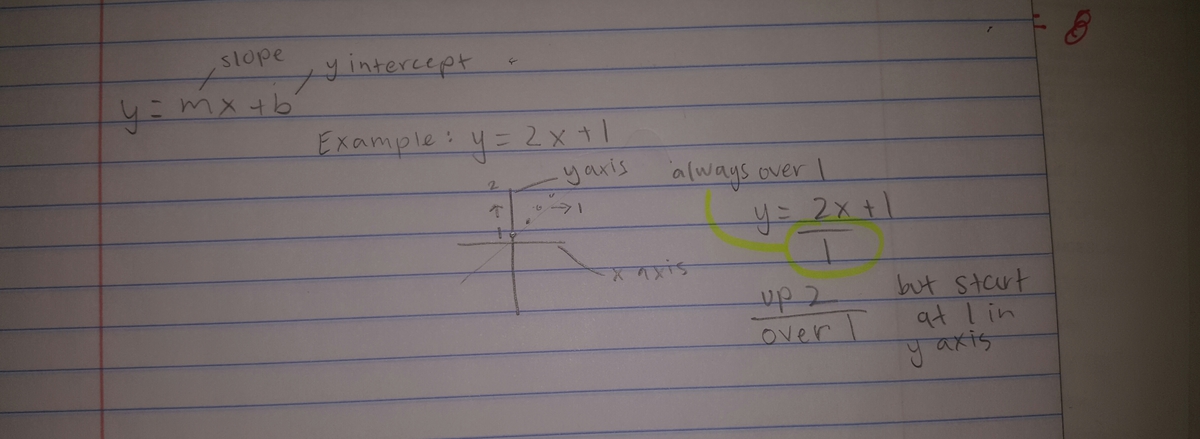 = 8
slope
y intercept
y = mx + b
Example: y = 2x + 1
y axis
always over 1
2
1
→ 1
y = 2x + 1
1
x axis
up 2
over 1
but start
at 1 in
y axis